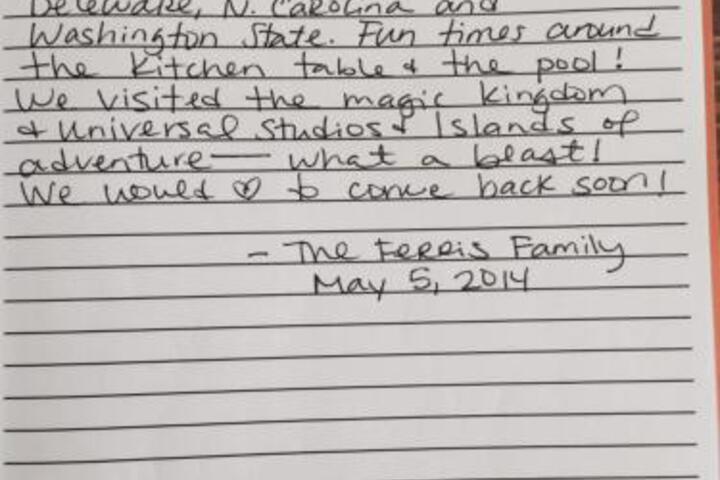 Delewake, N. Carolina and
Washington State. Fun times around
the kitchen table & the pool!
We visited the magic kingdom
& universal studios & Islands of
adventure — what a blast!
We would ♡ to come back soon!
- The Ferris Family
May 5, 2014